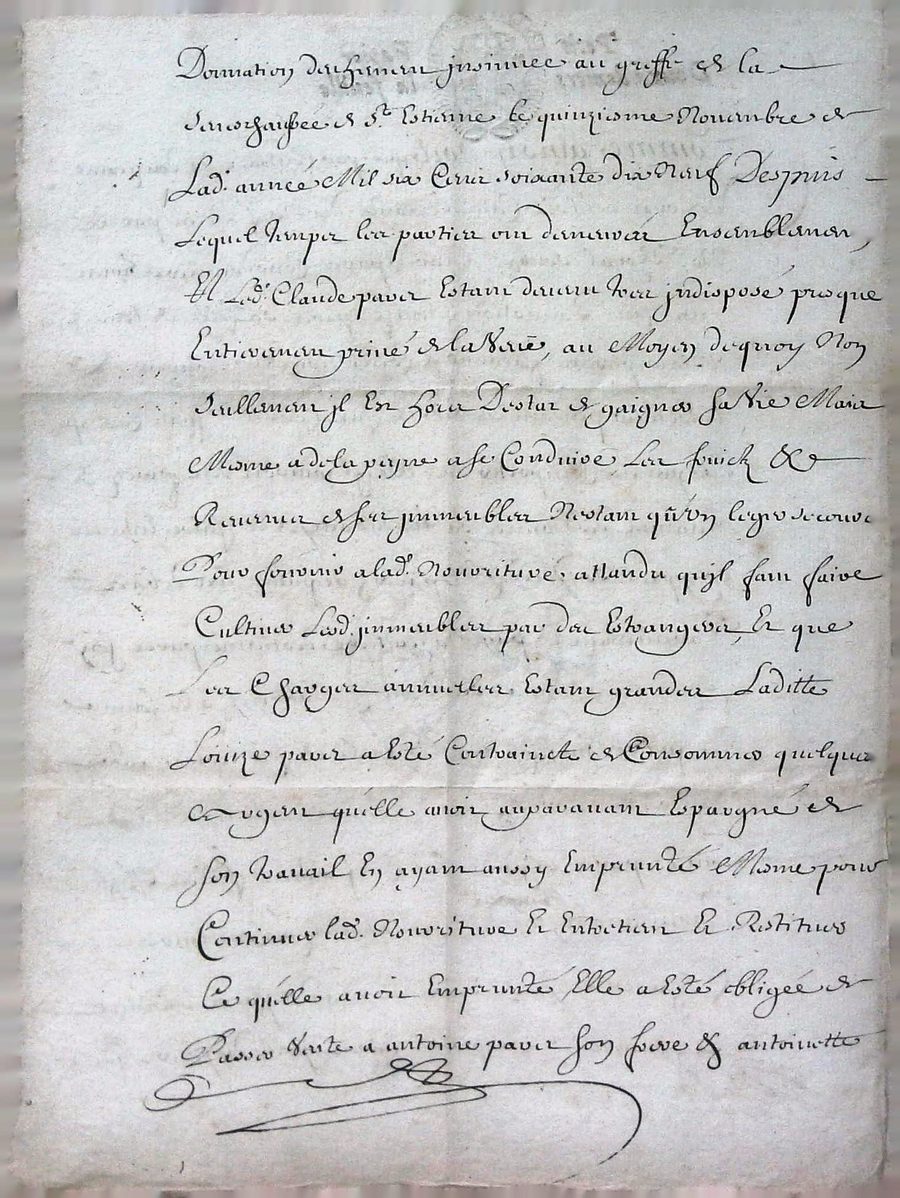 Donnation deuhement insinuée au greffe de la
Seneschaussée de St. Estienne le quinziesme Novembre de
Lad. année Mil six Cent soixante dix Neuf Despuis
Lequel temps les parties ont demeuré Ensemblement,
Et Led. Claude paret Estant devenu tres indisposé presque
Entierement privé de la Veüe, au Moyen dequoy Non
seullement jl Est hors Destat de gaigner sa Vie Mais
Mesme a de la peyne a se Conduire Les fruictz &
Revenus de ses jmmeubles Nestant qu'un leger secours
Pour fournir a lad. Nourriture, attandu qu'jl faut faire
Cultiver Lesd. jmmeubles par des Estrangers, Et que
Les Charges annuelles Estant grandes Laditte
Louize paret a Esté Contrainte de Consommer quelque
Argent qu'elle avoit auparavant Espargné de
son travail En ayant aussy Emprunté Mesme pour
Continuer lad. Nourriture Et Entretien Et Restituer
Ce qu'elle avoit Emprunté Elle a Esté obligée de
Passer Vente a antoine paret son frere & antoinette